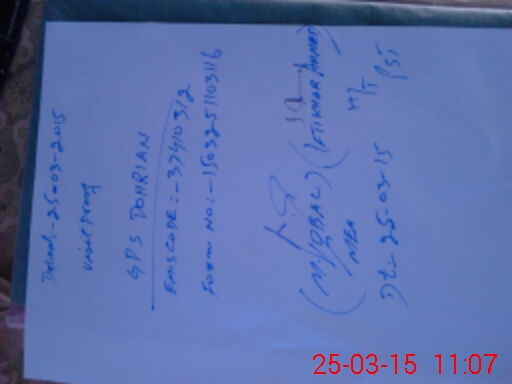 Dated:- 25-03-2015
Visit Proof
GPS DOHRIAN
EMISCODE:- 37410312
Form NO:- 15032511103116
(M. IQBAL)
MEA
Dt:- 25-03-15
(IFTIKHAR AHMAD)
PST
25-03-15 11:07